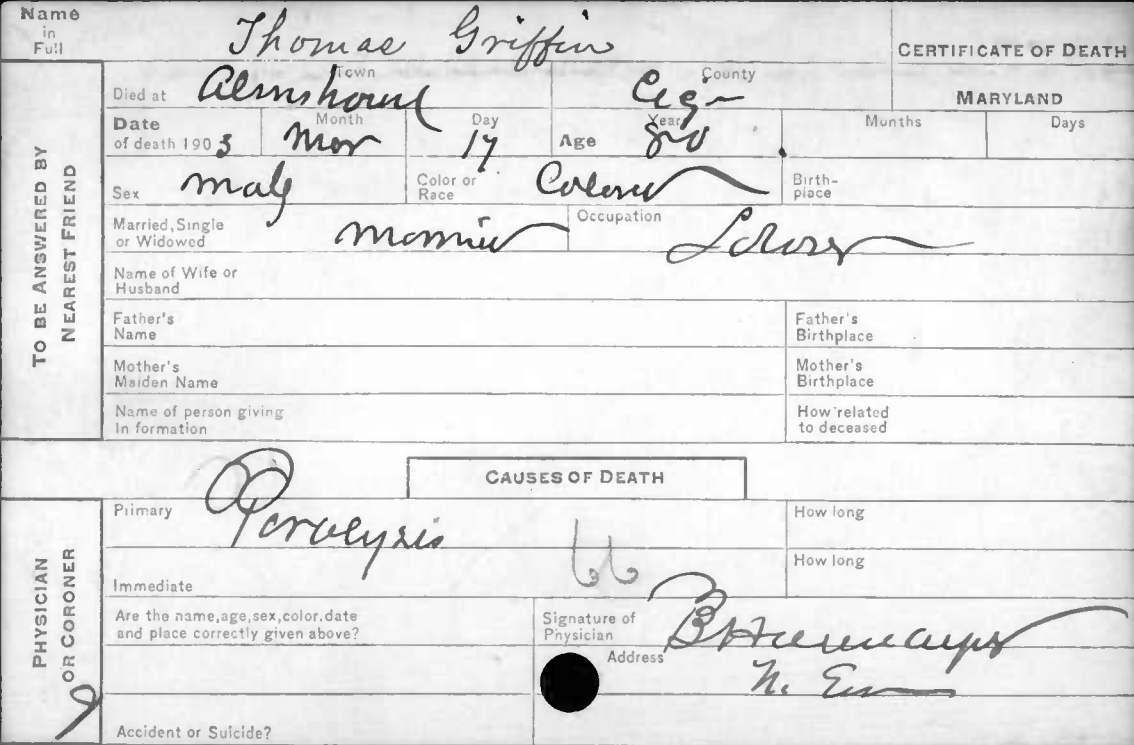 Name in Full Thomas Griffin
CERTIFICATE OF DEATH
TO BE ANSWERED BY NEAREST FRIEND
Died at Almshouse Town County
MARYLAND
Date of death 1903 Month Mar Day 17 Age Years 80 Months Days
Sex Male Color or Race Colored Birth-place
Married, Single or Widowed Married Occupation Laborer
Name of Wife or Husband
Father's Name Father's Birthplace
Mother's Maiden Name Mother's Birthplace
Name of person giving In formation How related to deceased
CAUSES OF DEATH
PHYSICIAN OR CORONER
Primary Paralysis How long
66
Immediate How long
Are the name, age, sex, color, date and place correctly given above? Signature of Physician
Address
Accident or Suicide?